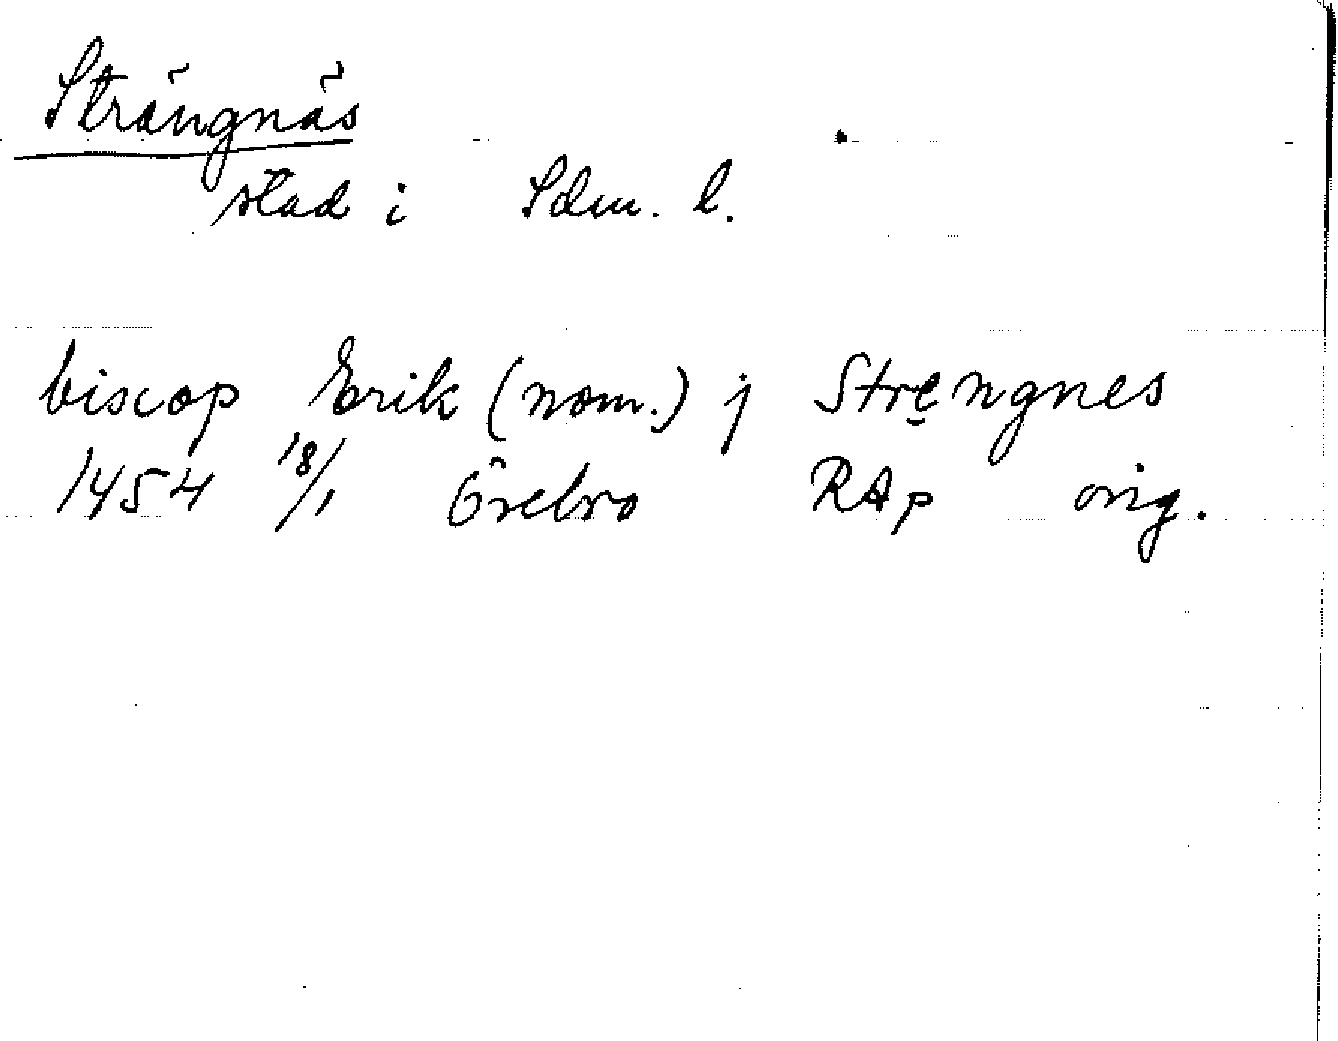 Strängnäs
stad i Sdm. l.
biscop Erik (nom.) j Stręngnes
1454 18/1 Örebro RAp orig.